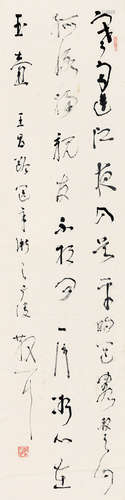 寒雨連江夜入吳平明送客楚山孤
洛陽親友如相問一片冰心在
玉壺 王昌齡送辛漸之廣陵 散耳